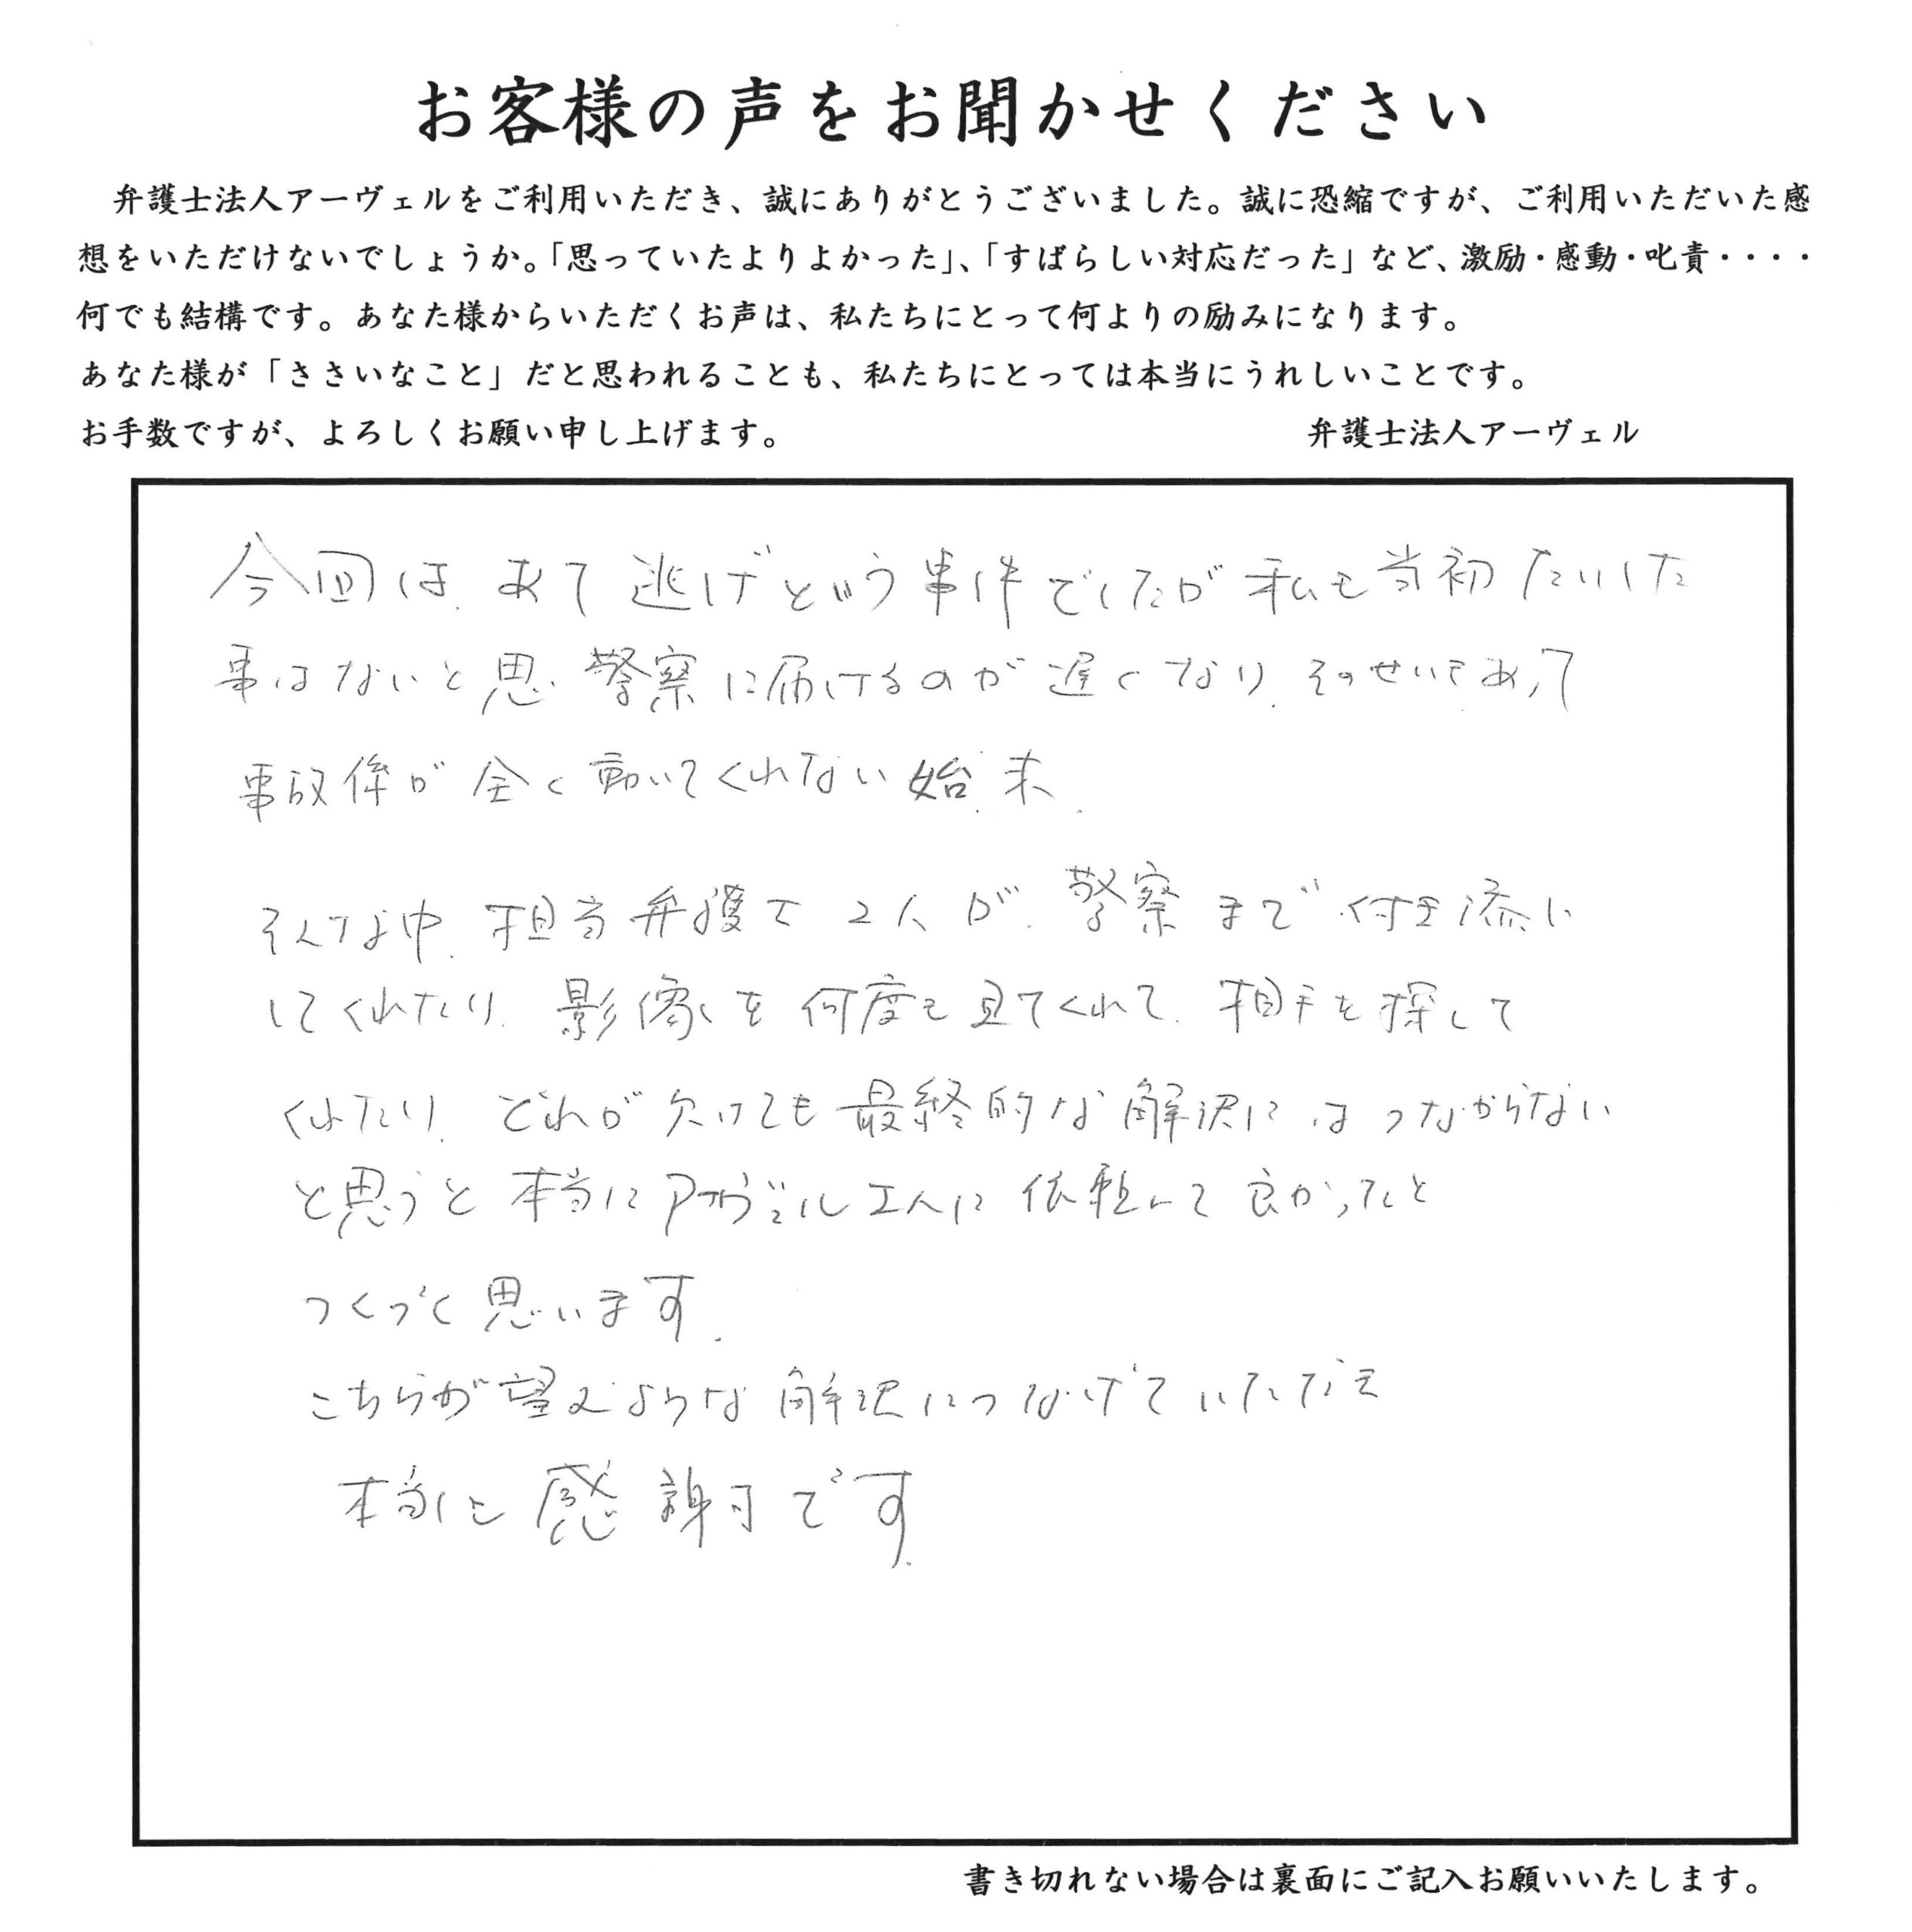 お客様の声をお聞かせください
弁護士法人アーヴェルをご利用いただき、誠にありがとうございました。誠に恐縮ですが、ご利用いただいた感
想をいただけないでしょうか。「思っていたよりよかった」、「すばらしい対応だった」など、激励・感動・叱責・・・・
何でも結構です。あなた様からいただくお声は、私たちにとって何よりの励みになります。
あなた様が「ささいなこと」だと思われることも、私たちにとっては本当にうれしいことです。
お手数ですが、よろしくお願い申し上げます。
弁護士法人アーヴェル
今回は、あて逃げという事件でしたが私も当初たいした
事はないと思い警察に届けるのが遅くなり、そのせいもあって
事故係が全く動いてくれない始末。
そんな中、担当弁護士2人が、警察まで付き添い
してくれたり、影像を何度も見てくれて、相手を探して
くれたり、どれが欠けても最終的な解決にはつながらない
と思うと本当にアーヴェルさんに依頼して良かったと
つくづく思います。
こちらが望むような解決につなげていただき
本当に感謝です。
書き切れない場合は裏面にご記入お願いいたします。